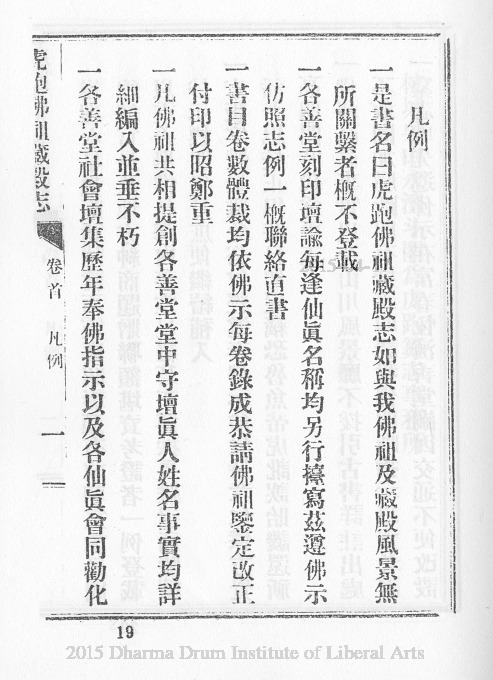 凡例
一是書名曰虎跑佛祖藏殿志如與我佛祖及藏殿風景無
所關繫者槪不登載
一各善堂刻印壇諭每逢仙眞名稱均另行擡寫茲遵佛示
仿照志例一槪聯絡直書
一書目卷數體裁均依佛示每卷錄成恭請佛祖鑒定改正
付印以昭鄭重
一凡佛祖共相提創各善堂堂中守壇眞人姓名事實均詳
細編入並垂不朽
一各善堂社會壇集歷年奉佛指示以及各仙眞會同勸化
虎跑佛祖藏殿志 卷首 凡例 一
19
2015 Dharma Drum Institute of Liberal Arts